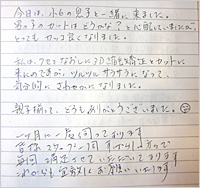 今日は、小6の息子と一緒に来ました。
男の子のカットはどうかな？と心配していましたが
とってもカッコ良くなりました。
私は、クセをなおしに3D縮毛矯正とカットに
来たのですが、ツルツルサラサラになって、
気分的にさわやかになりました。
親子揃って、どうもありがとうございました。
一ヶ月に一度伺っております
皆様スタッフ一同
毎回 満足させていただいております
これからも宜敷くお願いいたします